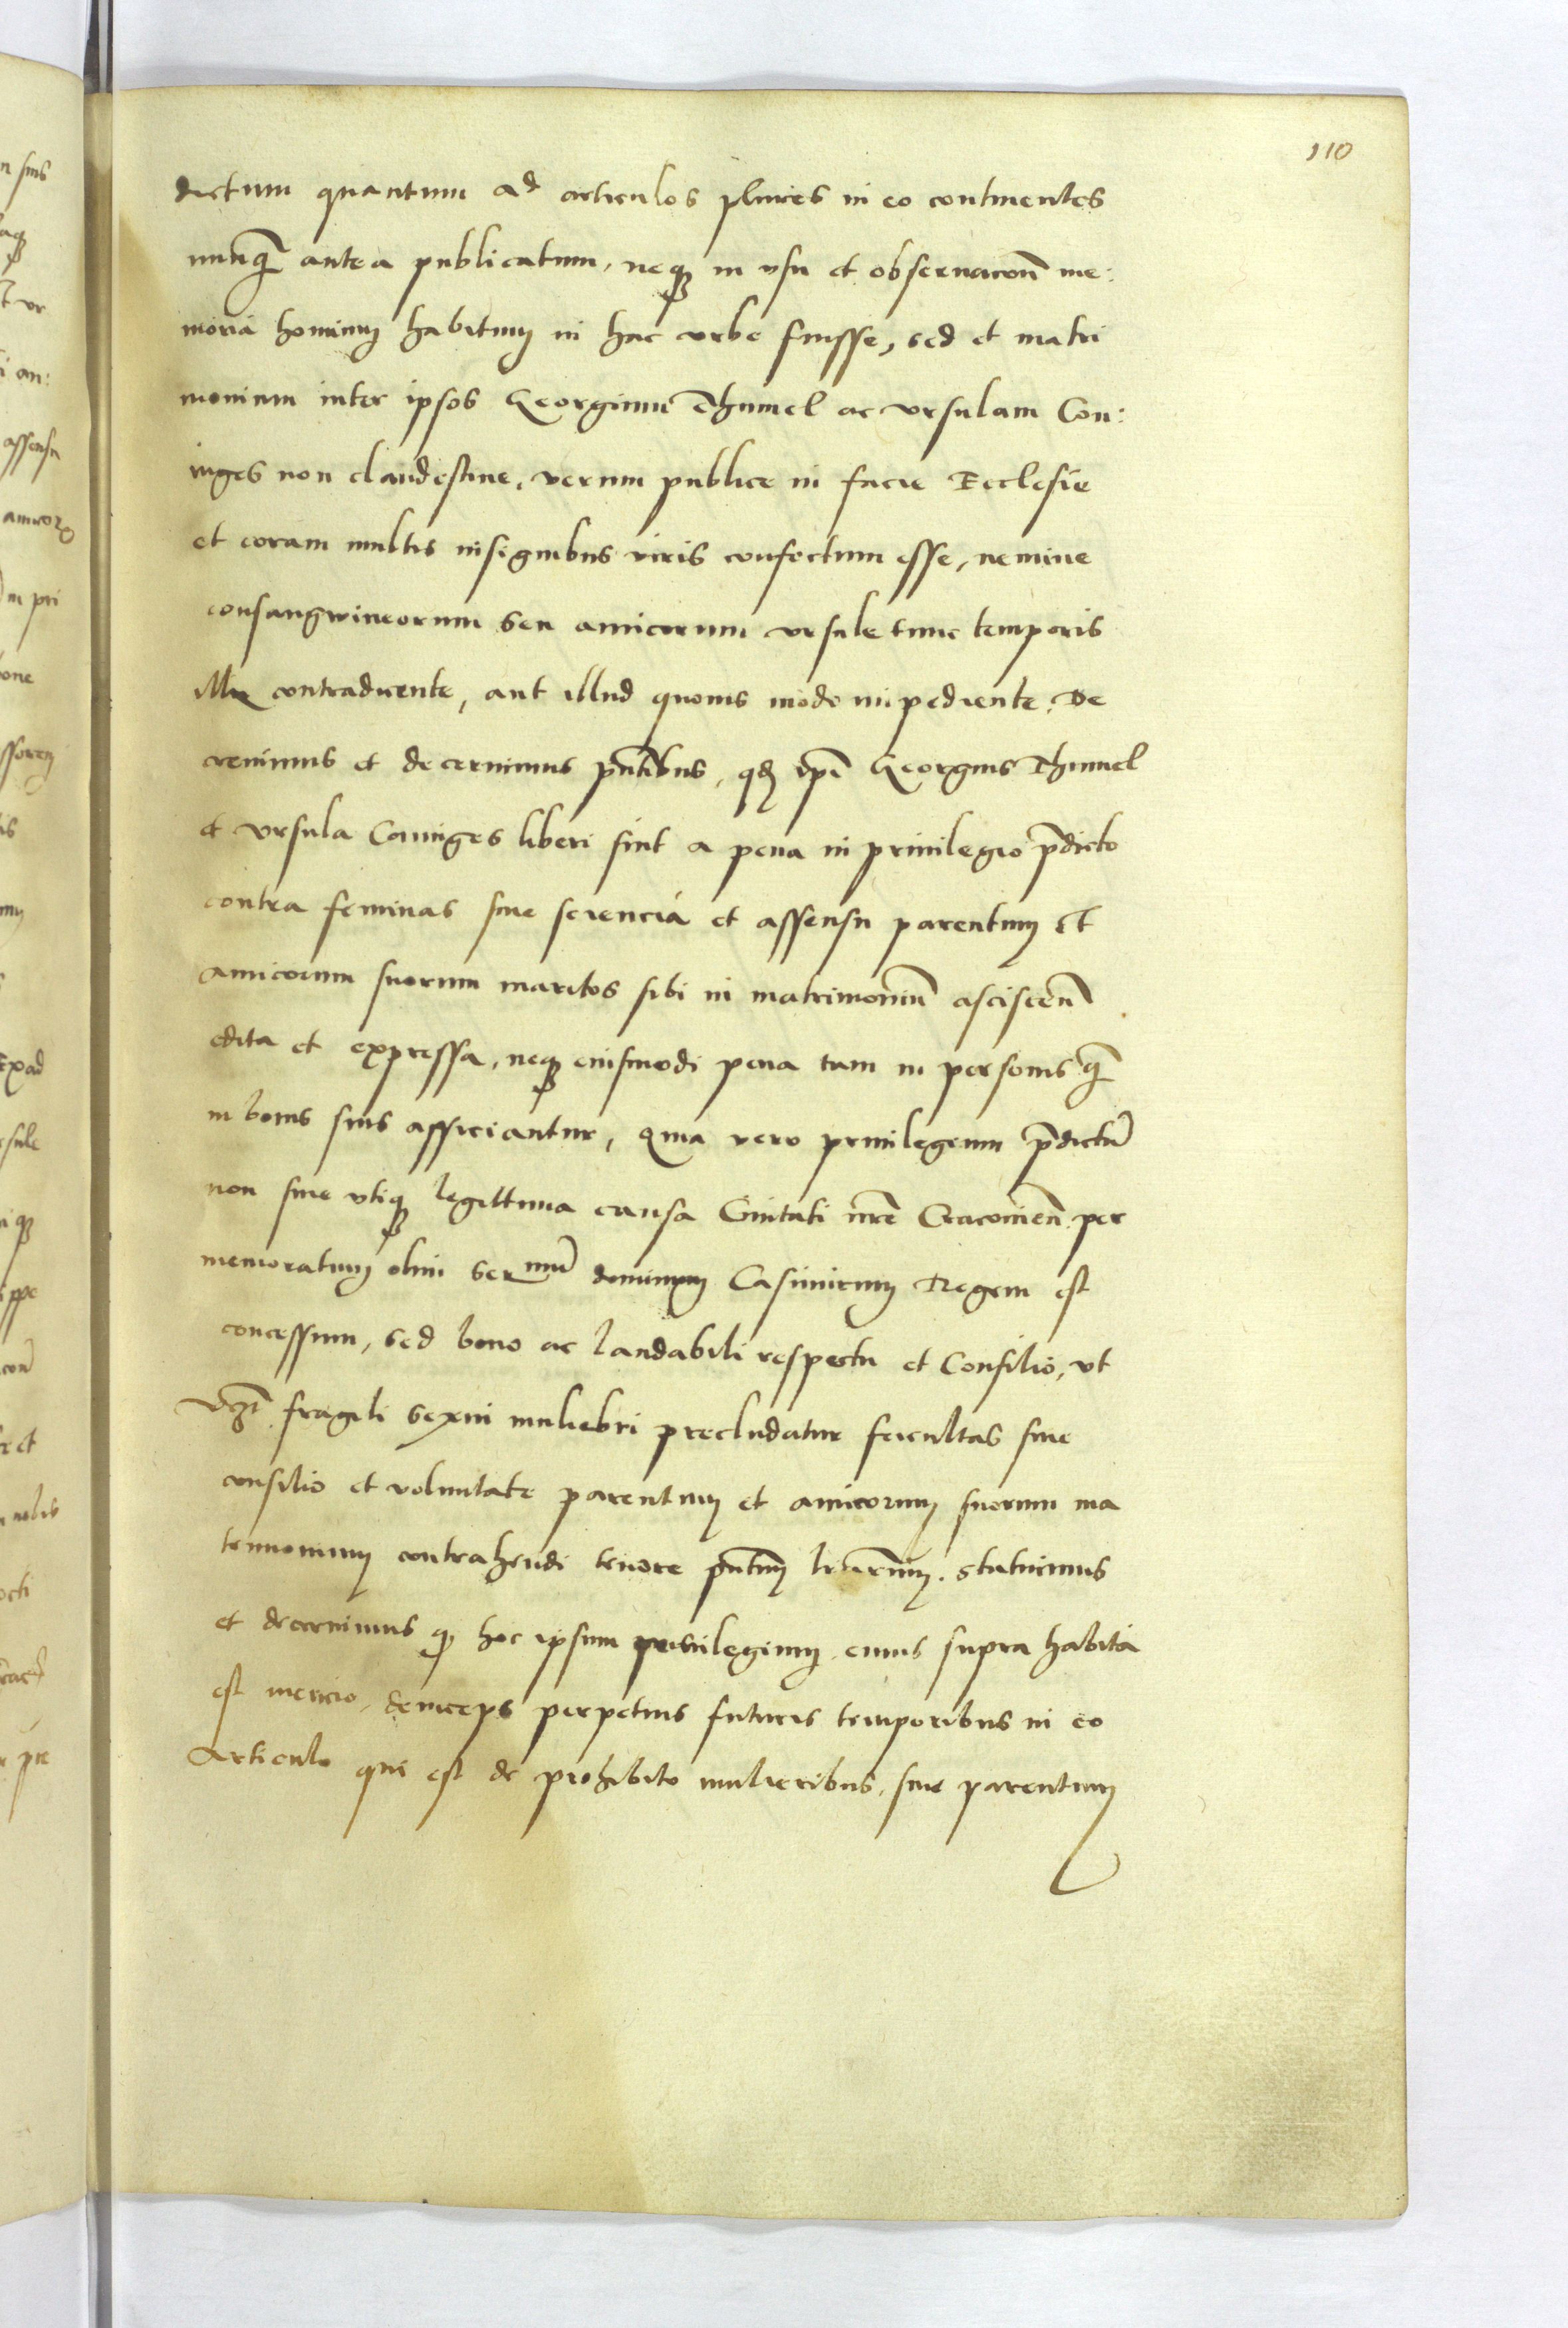 110
dictum quantum ad articulos plures in eo continentes
nunq̃ antea publicatum, neqꝫ in vsu et obseruacoñ me:
moria hominũ habitum in hac vrbe fuisse, sed et matri
monium inter ipsos Georgium Thumel ac vrsulam Con:
iuges non clandestine, verum publice in facie Ecclesie
et coram multis insignibus viris confectum esse, nemine
consangwineorum seu amicorum vrsule tunc temporis
contradicente, aut illud quouis modo impediente, De
creuimus et decernimus pñtibus, qđ ipi Georgius Thumel
et vrsula Coniuges liberi sint a pena in priuilegio p̃dicto
contra feminas sine sciencia et assensu parentum et
amicorum suorum maritos sibi in matrimoniũ ascisceñ
edita et expressa, neqꝫ eiusmodi pena tam in personis q̃
in bonis suis afficiantur, Quia vero priuilegium p̃dictũ
non sine vtiqꝫ legittima causa Ciuitati nr̃e Cracouieñ per
memoratum olim Ser mũ dominum Casimirum Regem est
concessum, sed bono ac laudabili respectu et Consilio, vt
vꝫ fragili sexui muliebri precludatur facultas sine
consilio et voluntate parentum et amicorum suorum ma
trimonium contrahendi tenore pñtium lr̃arum, statuimus
et decernimus qꝫ hoc ipsum priuilegium, cuius supra habita
est mencio, deinceps perpetuis futuris temporibus in eo
Articulo qui est de prohibito mulieribus, sine parentum